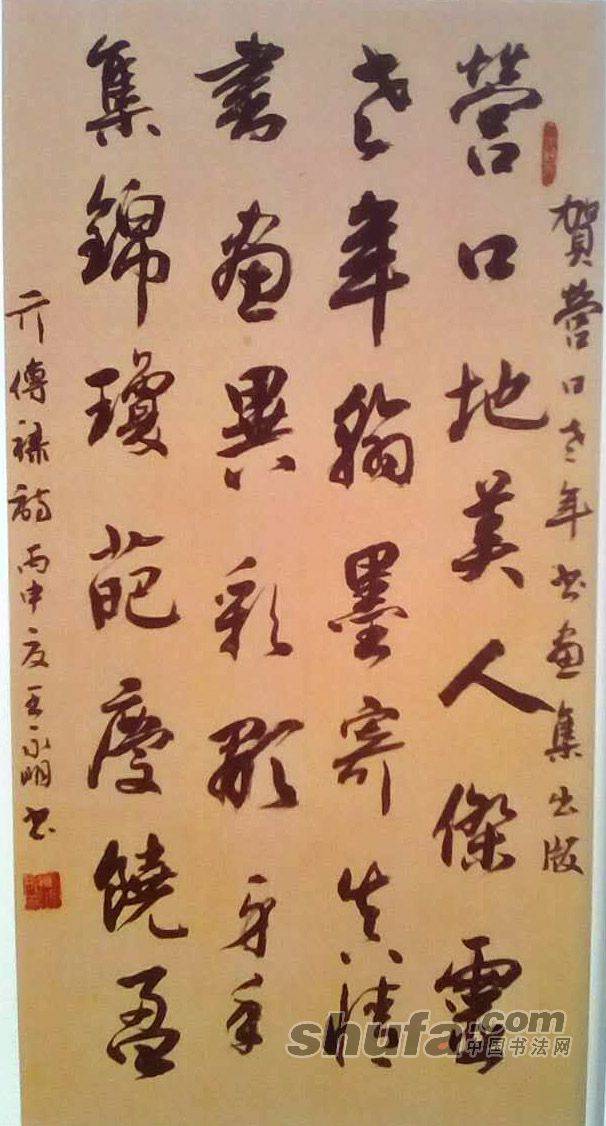 賀營口老年书畫集出版
營口地美人傑靈
老年翰墨寄真情
書畫異彩顯身手
集錦瓊葩慶饒盈
亓傳祿詩丙申夏王永明书
shufa.com
中国书法网